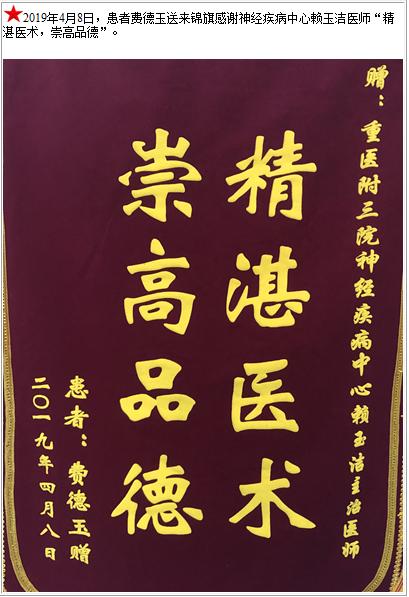 ★2019年4月8日，患者费德玉送来锦旗感谢神经疾病中心赖玉洁医师“精
湛医术，崇高品德”。
赠：重医附三院神经疾病中心赖玉洁主治医师
精湛医术
崇高品德
患者：费德玉赠
二〇一九年四月八日